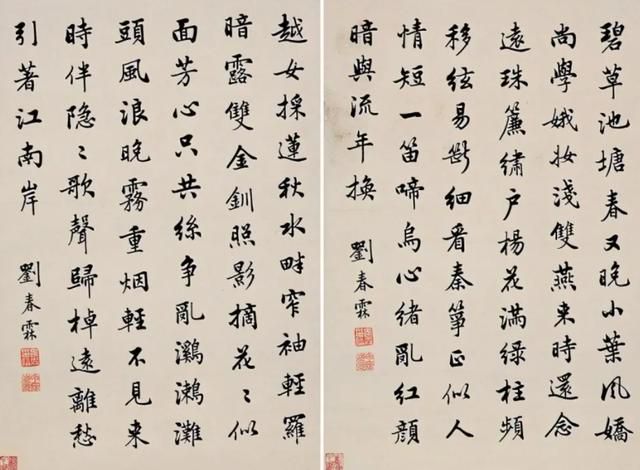 碧草池塘春又晚小葉風嬌
尚學娥妝淺雙燕来時還念
遠珠簾繡户楊花滿綠柱頻
移絃易斷細看秦箏正似人
情短一笛啼烏心緒亂紅顔
暗與流年換
劉春霖
越女採蓮秋水畔窄袖輕羅
暗露雙金釧照影摘花〻似
面芳心只共絲争亂鸂鶒灘
頭風浪晚霧重烟輕不見来
時伴隐〻歌聲歸棹遠離愁
引著江南岸
劉春霖